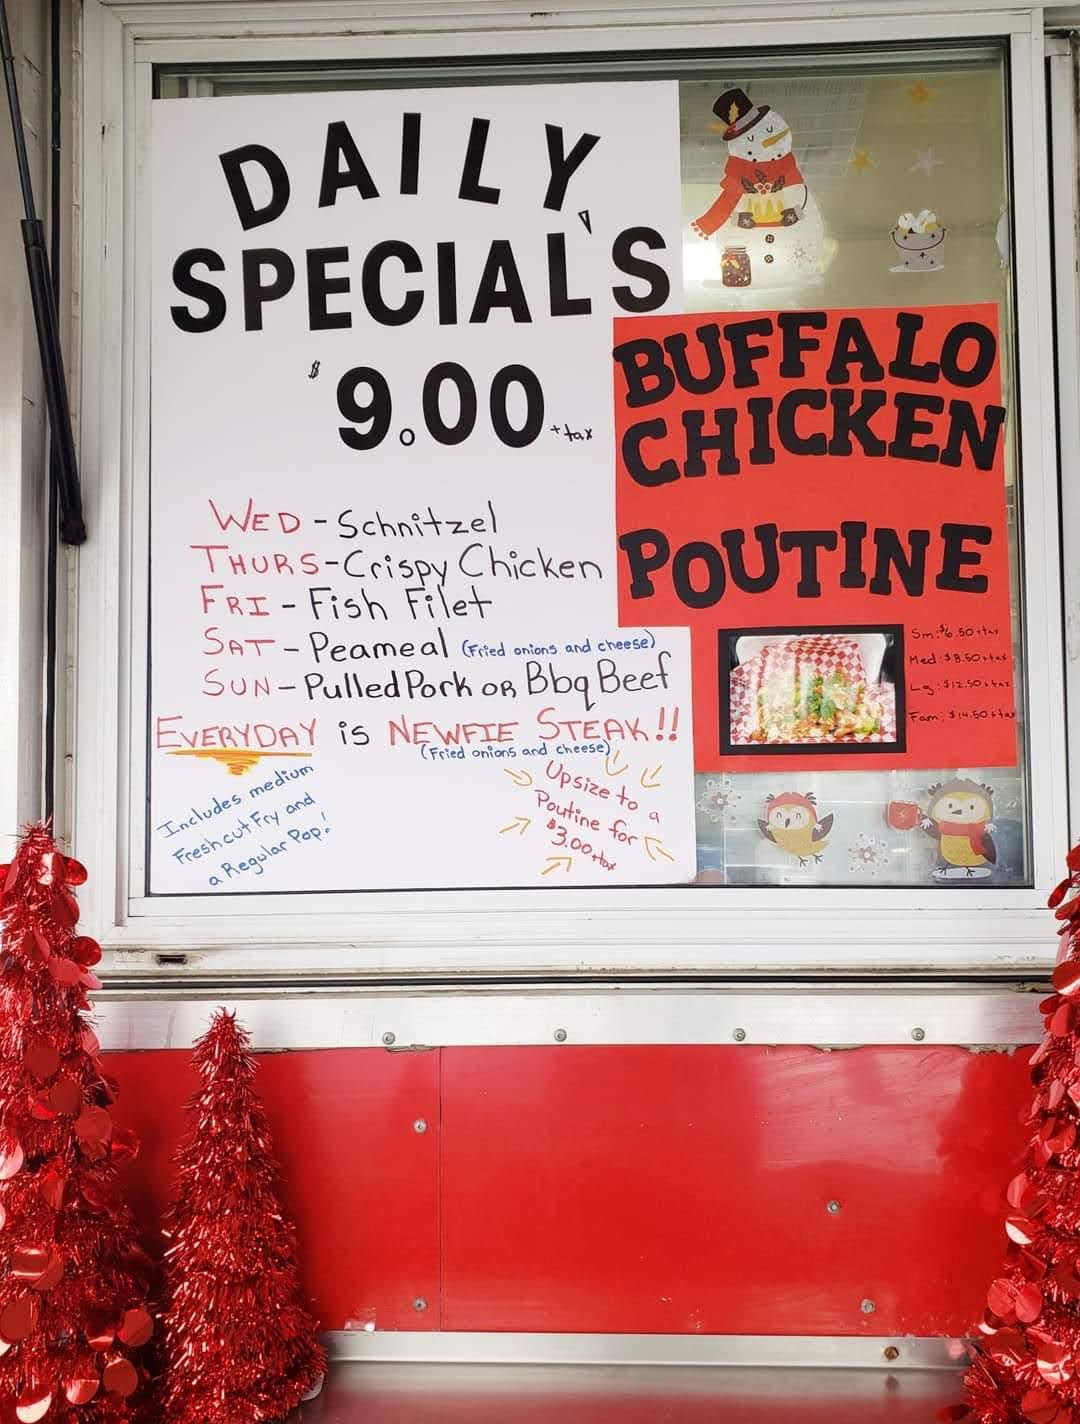 DAILY
SPECIAL'S
$9.00 + tax
WED - Schnitzel
THURS - Crispy Chicken
FRI - Fish Filet
SAT - Peameal (Fried onions and cheese)
SUN - Pulled Pork OR Bbq Beef
EVERYDAY is NEWFIE STEAK!!
(Fried onions and cheese)
Includes medium
Freshcut Fry and
a Regular Pop!
Upsize to a
Poutine for
$3.00 + tax
BUFFALO
CHICKEN
POUTINE
Sm: $6.50 + tax
Med: $8.50 + tax
Lg: $12.50 + tax
Fam: $14.50 + tax